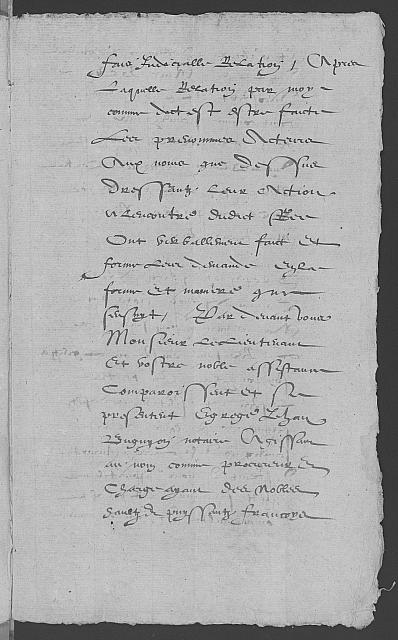 faire Judicialle Relation, Apres
Laquelle Relation par moy
comme dict est estre faicte
Les prenommes Acteurs
Aux noms que dessus
Dressantz Leur Action
A Lencontre dudict Ree
Ont verballement faict Et
forme Leur demande En la
forme Et maniere que
sensuyt, Par devant vous
Monsieur Le Lieutenant
Et vostre noble assistance
Comparoissent et se
presentent Egrege Jehan
notaire Agissant
au nom comme procureur Et
Charge ayant des Nobles
et puyssantz francoys